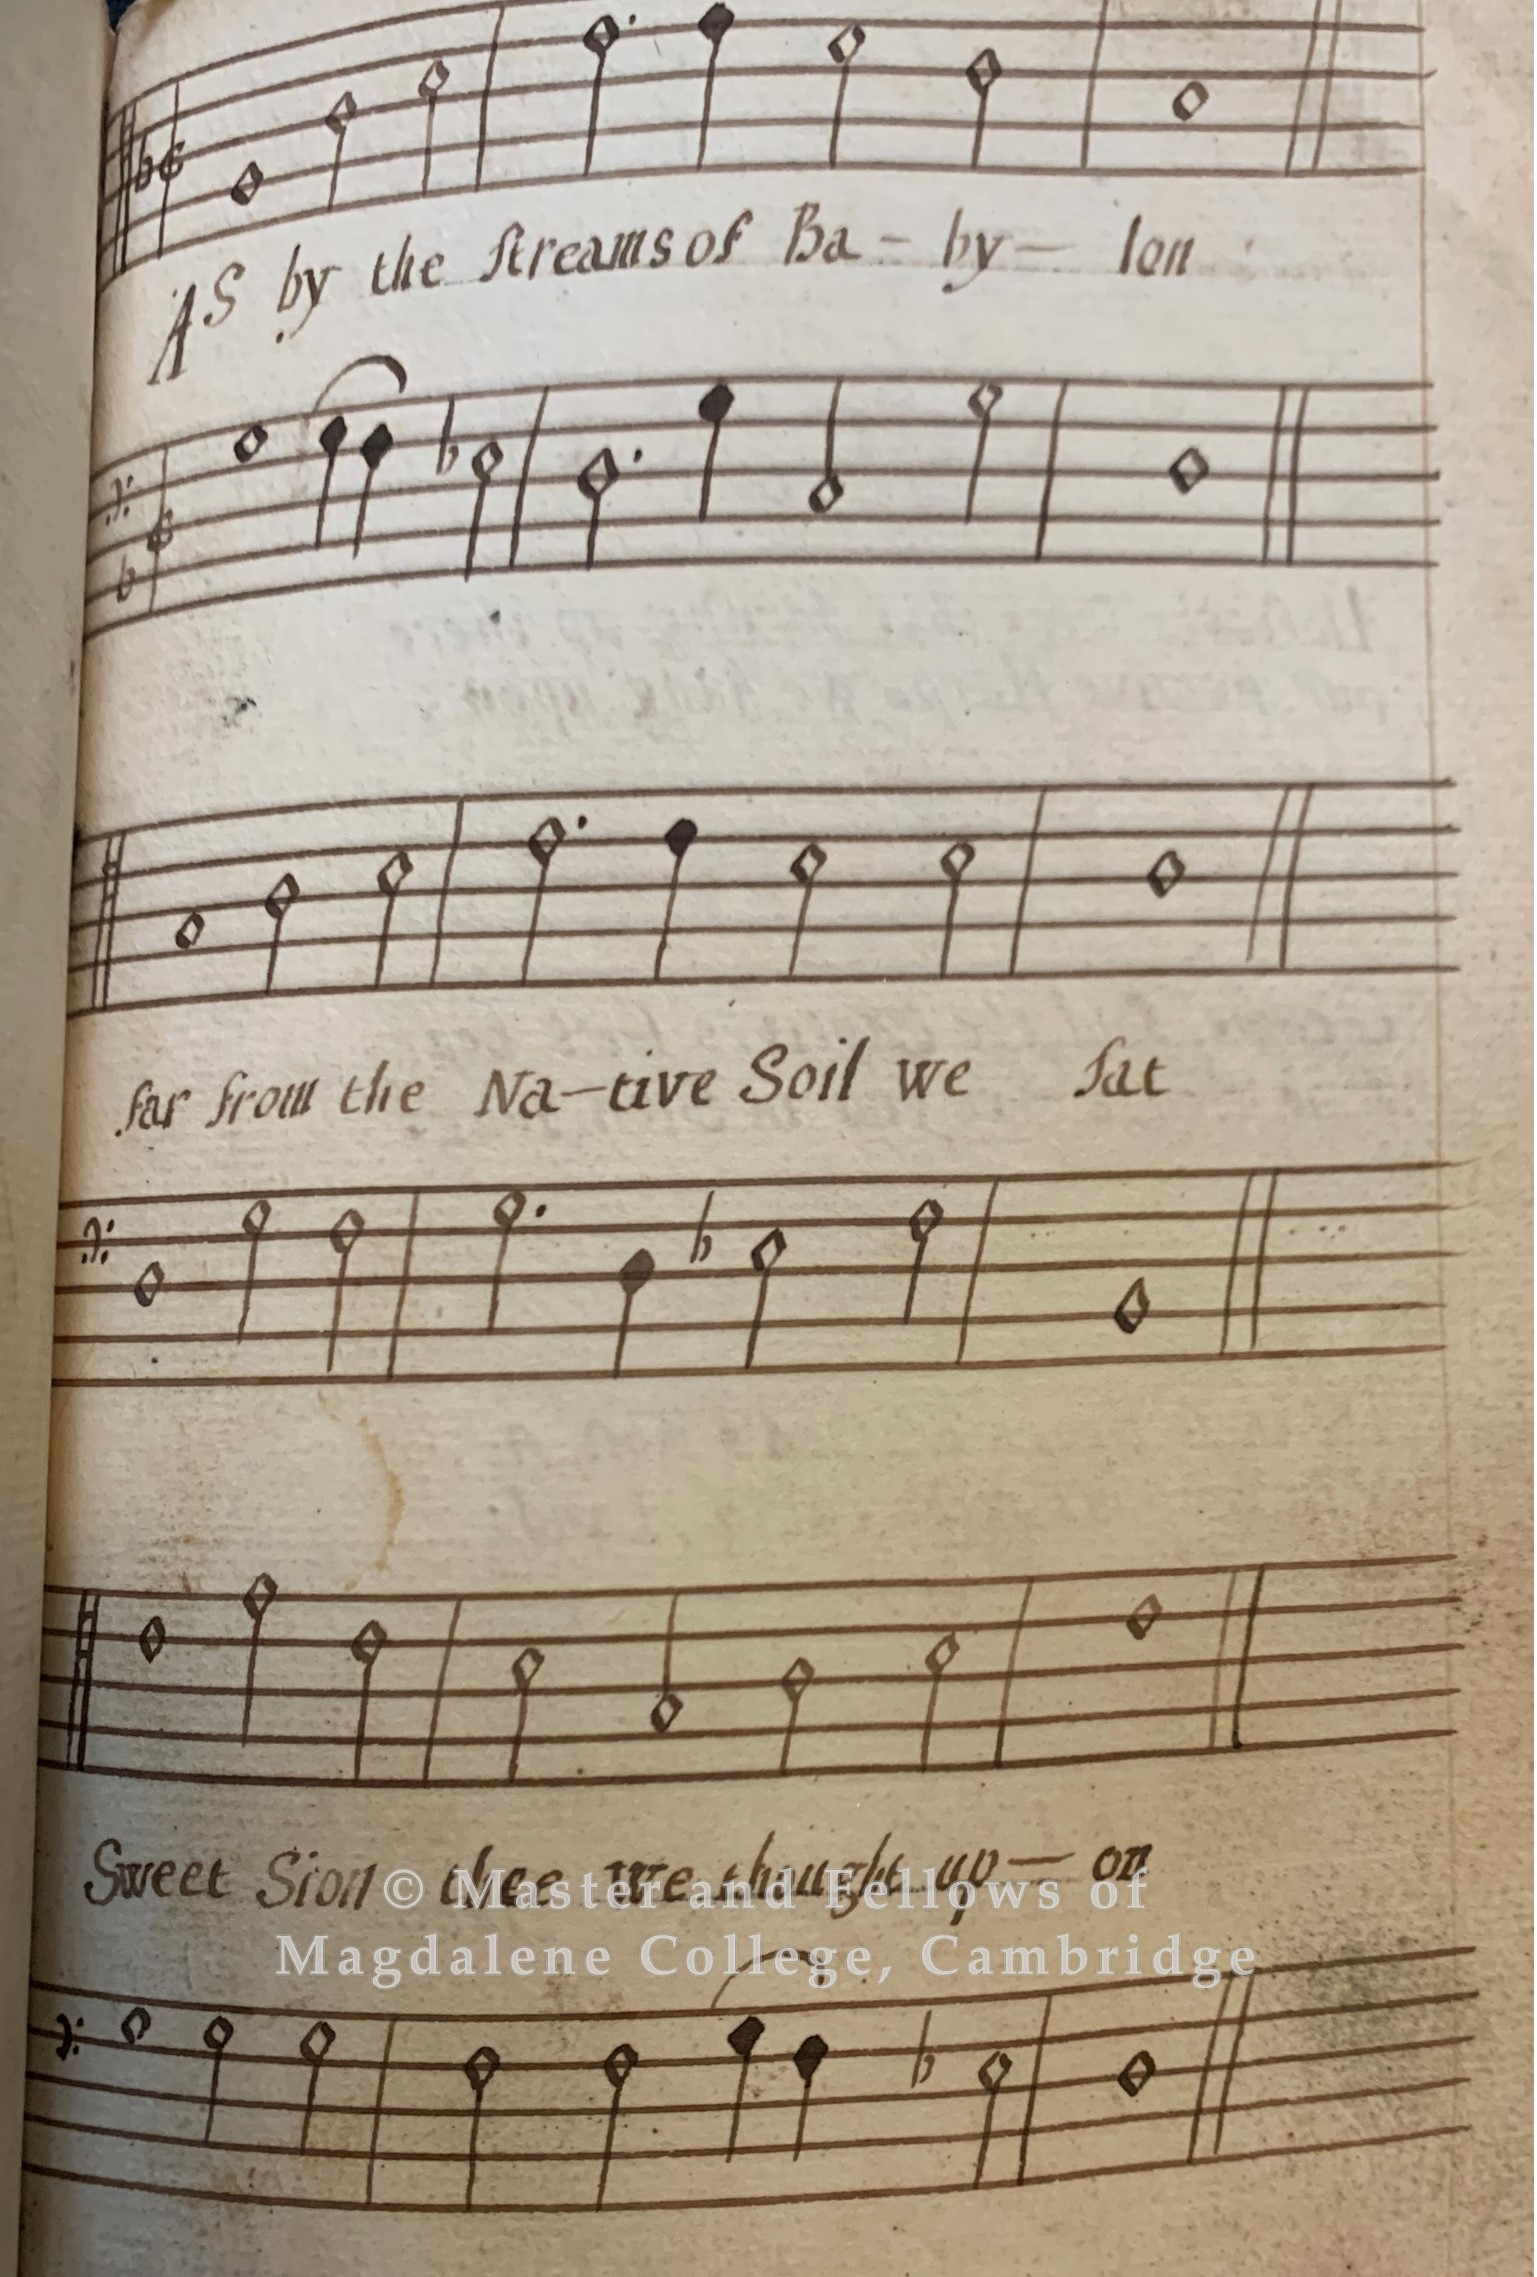 As by the streams of Ba- by- lon
far from the Na-tive Soil we sat
Sweet Sion thee we thought up- on
© Master and Fellows of
Magdalene College, Cambridge